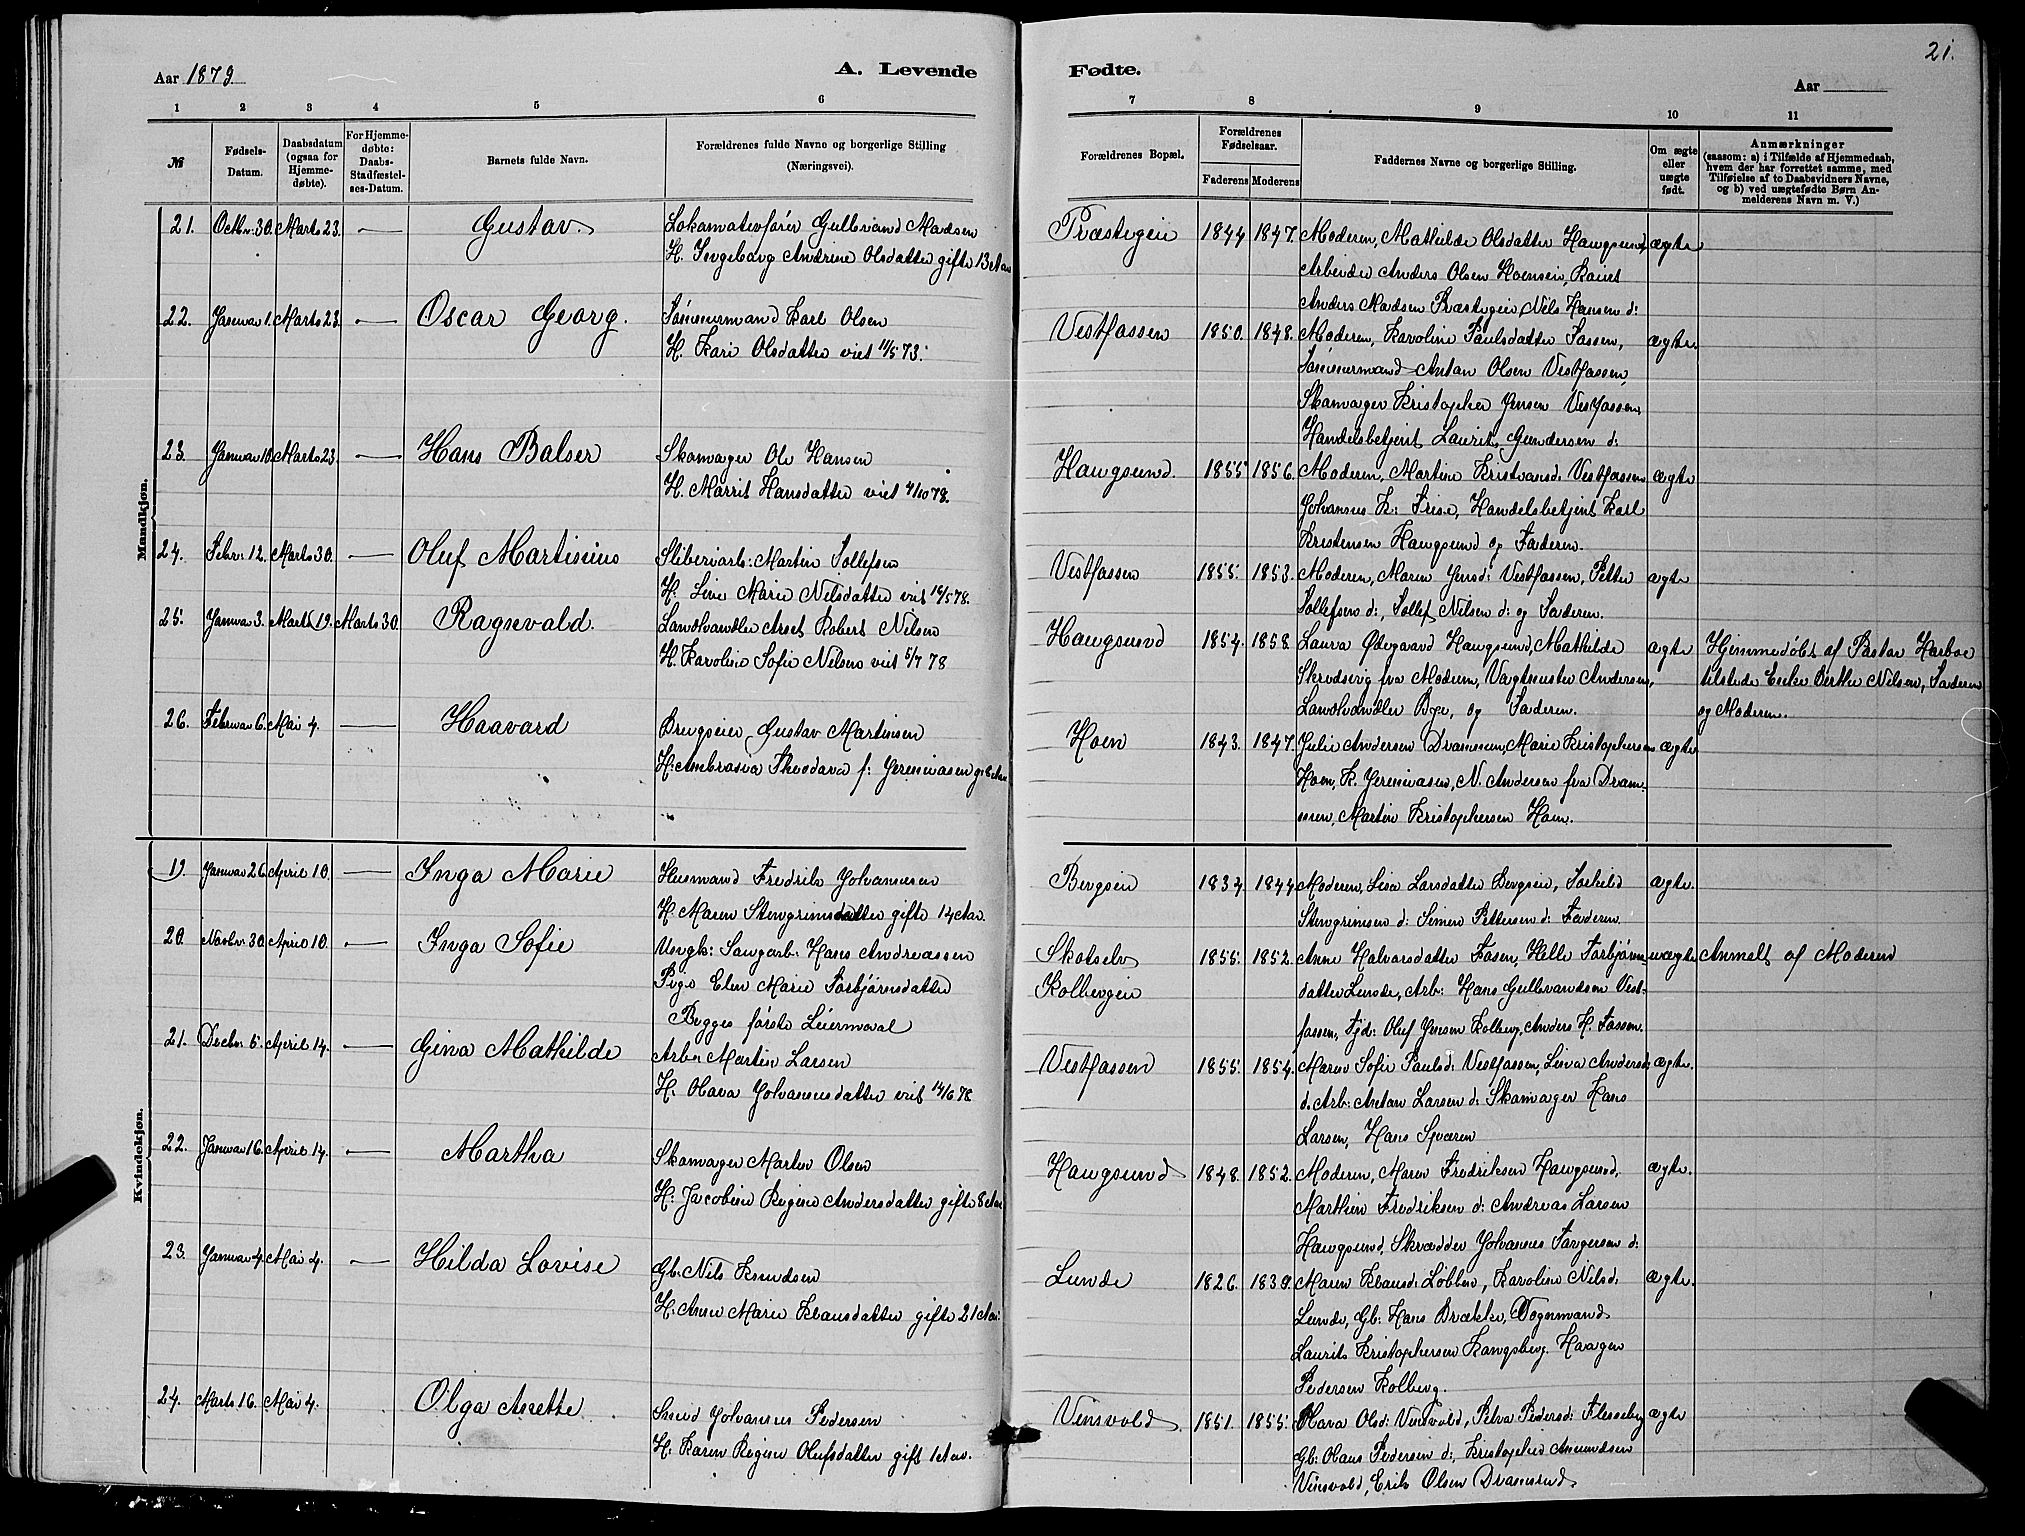 Aar 1879
A. Levende
Fødte.
Aar
21.
1 2 3 4 5 6 7 8 9 10 11
№
Fødsels-
Datum.
Daabsdatum
(ogsaa for
Hjemme-
døbte).
For Hjemme-
døbte:
Daabs-
Stadfæstel-
ses-Datum.
Barnets fulde Navn.
Forældrenes fulde Navne og borgerlige Stilling
(Næringsvei).
Forældrenes Bopæl.
Forældrenes
Fødselsaar.
Faderens Moderens
Faddernes Navne og borgerlige Stilling.
Om ægte
eller
uægte
født.
Anmærkninger
(saasom: a) i Tilfælde af Hjemmedaab,
hvem der har forrettet samme, med
Tilføielse af to Daabsvidners Navne,
og b) ved uægtefødte Børn An-
melderens Navn m. V.)
Mandkjøn.
21. Octbr. 30. Marts 23. — Gustav. Lokomotivfører Gulbrand Madsen
H. Ingeborg Andrine Olsdatter gifte 13 Aar
Præstegei 1844 1847. Moderen, Mathilde Olsdatter Haugsund, ægte
Arbeider Anders Olsen Hoensei,
Anders Madsen Præstegei, Nils Hansen d:
22. Januar 1. Marts 23. — Oscar Georg. Tømmermand Karl Olsen
H. Kari Olsdatter viet 11/5 73.
Vestfossen 1850. 1848. Moderen, Karoline Paulsdatter Fossen, ægte.
Tømmermand Anton Olsen Vestfossen,
Skomager Kristopher Jensen Vestfossen,
Handelsbetjent Laurits Gundersen d:
23. Januar 10. Marts 23. — Hans Balser Skomager Ole Hansen
H. Marrit Hansdatter viet 4/10 78.
Haugsund. 1855 1856. Moderen, Martine Kristiansd: Vestfossen ægte
Johannes K: Frise, Handelsbetjent Karl
Kristensen Haugsund og Faderen.
24. Febr. 12. Marts 30. — Oluf Martinius Sliberiarb: Martin Tollefsen
H. Live Marie Nilsdatter viet 12/5 78.
Vestfossen 1855. 1853. Moderen, Maren Jensd: Vestfossen, Petter ægte
Tollefsen d:, Tollef Nilsen d: og Faderen.
25. Januar 3. Marts 19. Marts 30. Ragnvald. Landhandler Robert Nilsen
H. Karoline Sofie Nilsen viet 5/7 78
Haugsund 1854. 1858. Laura Ødegaard Haugsund, Mathilde ægte Hjemmedøbt af Pastor Harboe
Skredsvig fra Modum, Vagtmester Andersen, tilstede Enke Berthe Nilsen, Faderen
Landhandler Bye, og Faderen. og Moderen.
26. Februar 6. Mai 4. — Haavard Brugseier Gustav Martinsen
H: Ambrosia Theodora f: Jeremiassen g. 6 Aar
Hoen 1843. 1847. Julie Andersen Drammen, Marie Kristophersen ægte
Hoen, K. Jeremiasen, N. Andersen fra Dram-
men, Martin Kristophersen Hoen.
Kvindekjøn.
19. Januar 26. April 10. — Inga Marie Husmand Fredrik Johannesen
H. Maren Stengrimsdatter gifte 14 Aar.
Bergsei 1834 1844 Moderen, Lisa Larsdatter Bergsei, ægte.
Stengrimsen d: Simen Pettersen d: Faderen.
20. Novbr. 30. April 10. — Inga Sofie Ungk: Saugarb. Hans Andreassen
Pige Elen Marie Torbjørnsdatter
Begges første Leiermaal
Skotselv 1855. 1852. Anne Halvorsdatter Fosen, Helle Torbjørns- uægte Anmelt af Moderen
Kolbergei datter Lunde, Arb: Hans Gulbrandsen Vest-
fossen, Tjd: Oluf Jensen Kolberg, Anders H. Fossen.
21. Decbr. 5. April 14. — Gina Mathilde Arb. Martin Larsen
H: Olava Johannesdatter viet 14/6 78
Vestfossen 1855. 1854. Maren Sofie Paulsd: Vestfossen, Lina Andersd: ægte.
d: Arb: Anton Larsen d: Skomager Hans
Larsen, Hans
22. Januar 16. April 14. — Martha Skomager Martin Olsen
H: Jacobine Regine Andersdatter gifte 8 Aar
Haugsund 1848. 1852. Moderen, Maren Fredriksen Haugsund, ægte.
Marthin Fredriksen d: Andreas Larsen
Haugsund, Skrædder Johannes Torgersen d:
23. Januar 4. Mai 4. — Hilda Lovise Gb. Nils Knudsen
H: Anne Marie Klausdatter gifte 21 Aar:
Lunde 1826. 1839. Maren Klausd: Løbben, Karoline Nilsd: ægte.
Lunde, Gb: Hans Brække, Vognmand
Laurits Kristophersen Kongsberg. Haagen
Pedersen Kolberg.
24. Marts 16. Mai 4. Olga Anette Smed Johannes Pedersen
H: Karen Regine Olufsdatter gift 1 Aar.
Vinsvold 1851. 1855. Olava Olsd: Vinsvold, Petra Pedersd: Flesseberg ægte
Gb: Hans Pedersen d: Kristopher Amundsen
Vinsvold, Erik Olsen